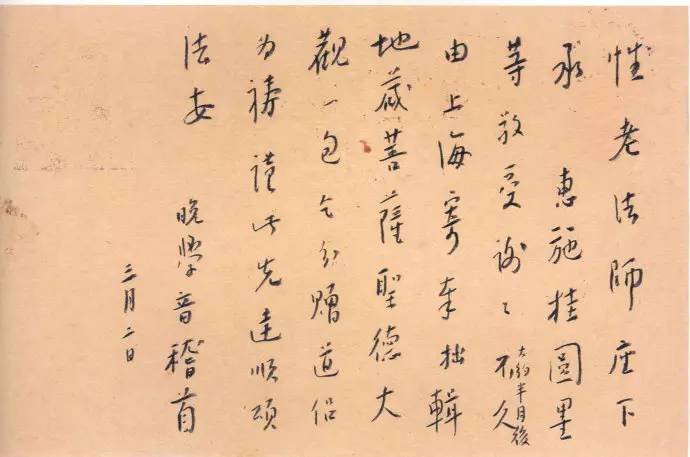 性老法師座下
承　惠施桂圓墨
等敬受謝々不久大約半月後
由上海寄奉拙輯
地藏菩薩聖德大
觀一包乞分贈道侶
為禱謹此先達順頌
法安
晚學音稽首
三月二日